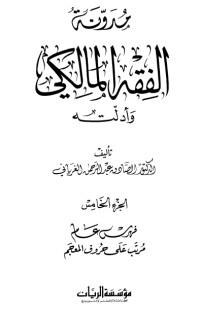 مدونة
الفقه المالكي
وأدلته
تأليف
الدكتور الصادق عبد الرحمن الغرياني
الجزء الخامس
فهرس عام
مرتب على حروف المعجم
مؤسسة الريان